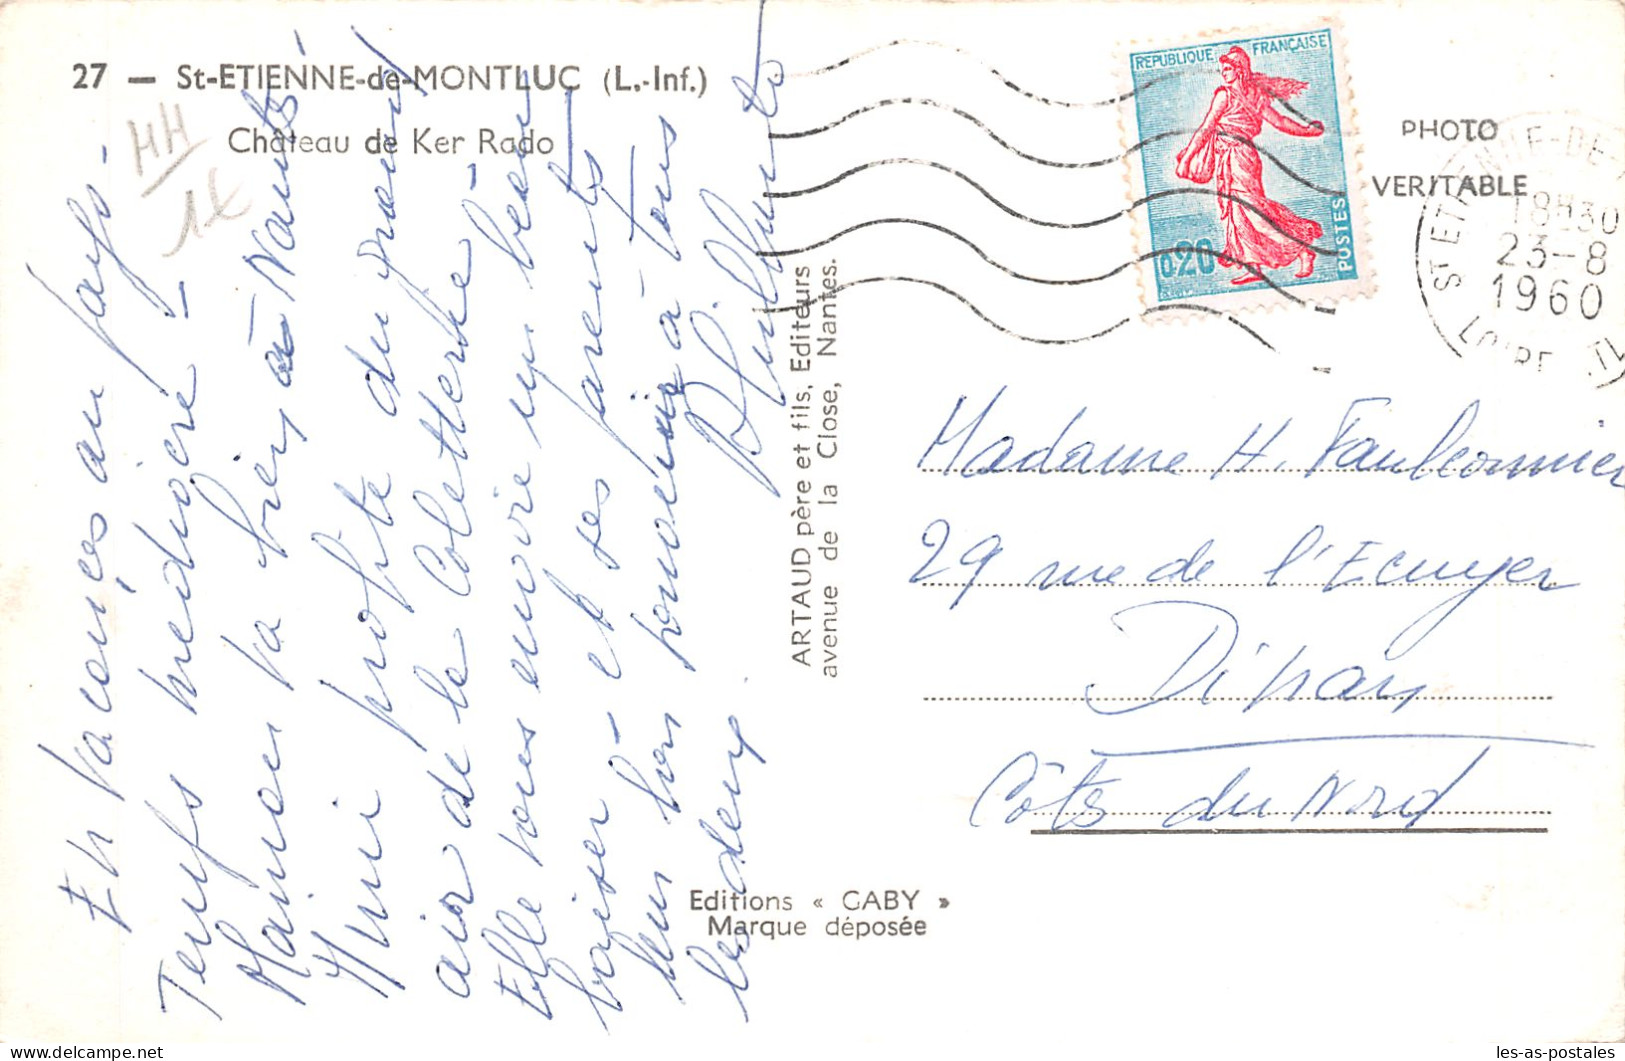 27 — St-ETIENNE-de-MONTLUC (L.-Inf.)
Château de Ker Rado
HH
1€
REPUBLIQUE FRANÇAISE
0,20
POSTES
PHOTO
VERITABLE
ST ETIENNE-DE-
18H30
23-8
1960
LOIRE
ARTAUD père et fils, Editeurs
avenue de la Close, Nantes.
Madame H. Fauconnier
29 rue de l'Ecuyer
Côtes du Nord
Editions « GABY »
Marque déposée
En vacances au pays -
Temps médiocre -
Maman va bien à Nantes
Mimi profite du grand
air de la
Elle vous envoie un beau
baiser - et ses parents
leur bon à tous
les deux